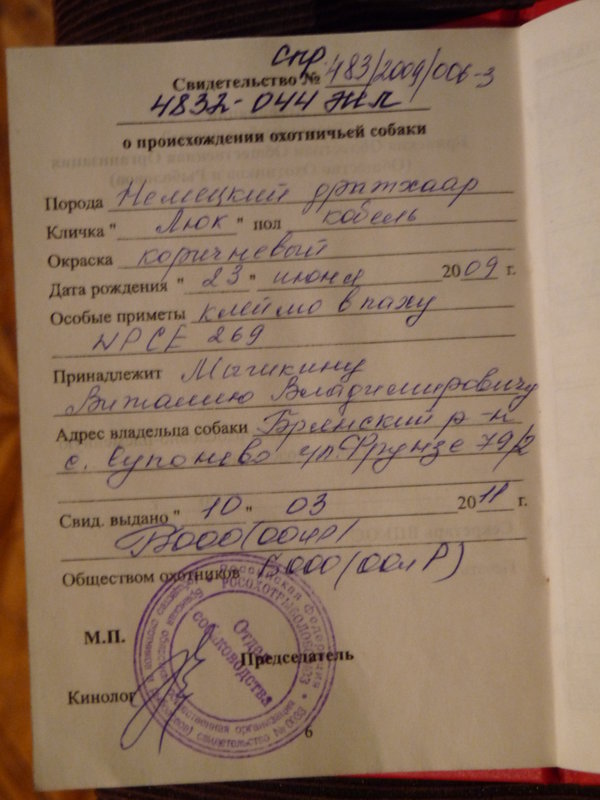 спр.
Свидетельство № 483/2009/006-3
4832-044 жл
о происхождении охотничьей собаки
Порода Немецкий дратхаар
Кличка " Люк " пол кобель
Окраска коричневый
Дата рождения "23" июня 2009 г.
Особые приметы клеймо в паху
WPCE 269
Принадлежит
Виталию Владимировичу
Адрес владельца собаки Брянский р-н
с. Супонево ул. Фрунзе 79/2
Свид. выдано "10" 03 2011 г.
БООО(ООиР)
Обществом охотников БООО(ООиР)
М.П.
Председатель
Кинолог
Российская Федерация
РОСОХОТРЫБОЛОВСОЮЗ
Отдел
собаководства
6